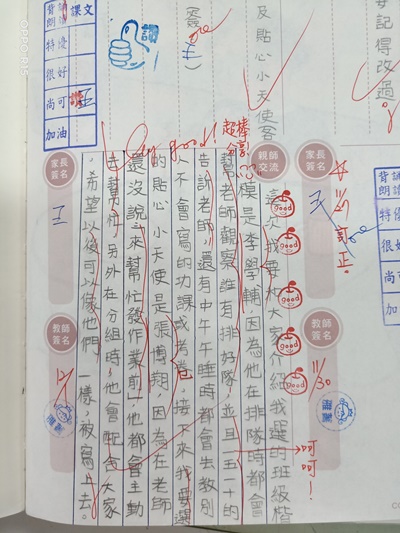 記得改過。
及貼心小天使客
背誦
朗讀
課文
特優
很好
尚可
加油
家長
簽名
11/29
訂正
教師
簽名
11/30
親師
交流
這次我要大家介紹我選的班級楷
模是李學輔因為他在排隊時都會
幫老師觀察誰有排好隊,並且一五一十的
告訴老師,還有中午午睡時都會去教別
人不會寫的功課或考卷。接下來我要選
的貼心小天使是張博翔,因為在老師
還沒說來幫忙發作業前他都會主動
去幫忙另外在分組時,他會配合大家
。希望以後可以像他們一樣,被寫上去。
超棒
good
good
good
good
good
呵
呵!
家長
簽名
王
教師
簽名
背誦
朗讀
特優
很好
尚可
加油